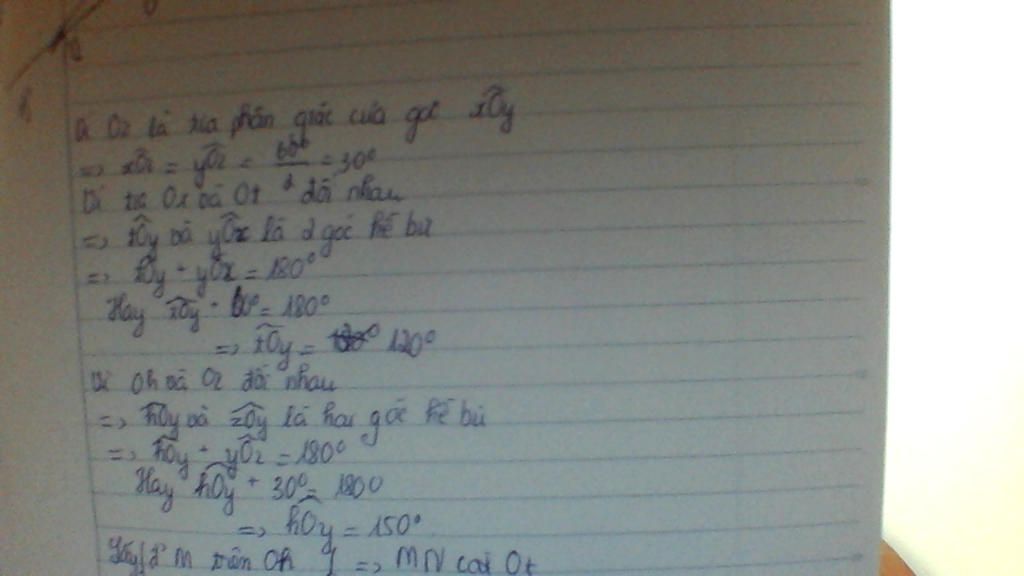 Vì Oz là tia phân giác của góc xOy
=> xOz = yOz = 60°/2 = 30°
Vì tia Ox và Ot đối nhau
=> tOy và yOx là 2 góc kề bù
=> tOy + yOx = 180°
Hay tOy + 60° = 180°
=> tOy = 120°
Vì Oh và Oz đối nhau
=> hOy và zOy là hai góc kề bù
=> hOy + yOz = 180°
Hay hOy + 30° = 180°
=> hOy = 150°
Lấy M trên Oh => MN cắt Ot